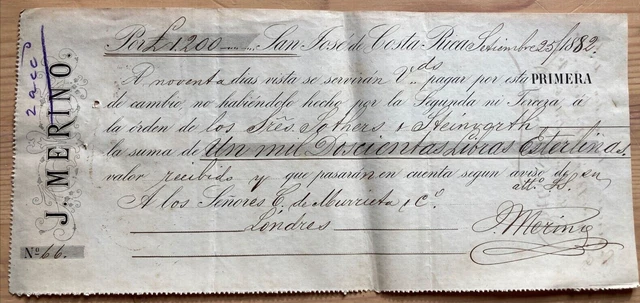 Por £1.200 San José de Costa Rica Setiembre 25/1882.
A noventa dias vista se servirán V.ds pagar por esta PRIMERA
de cambio, no habiéndolo hecho por la Segunda ni Tercera, á
la órden de los Sres.
la suma de Un mil Doscientas Libras Esterlinas,
valor recibido y que pasarán en cuenta segun aviso de
A los Señores C. de Murrieta & Cº.
Londres
J. Merino
J. MERINO.
Nº 66.